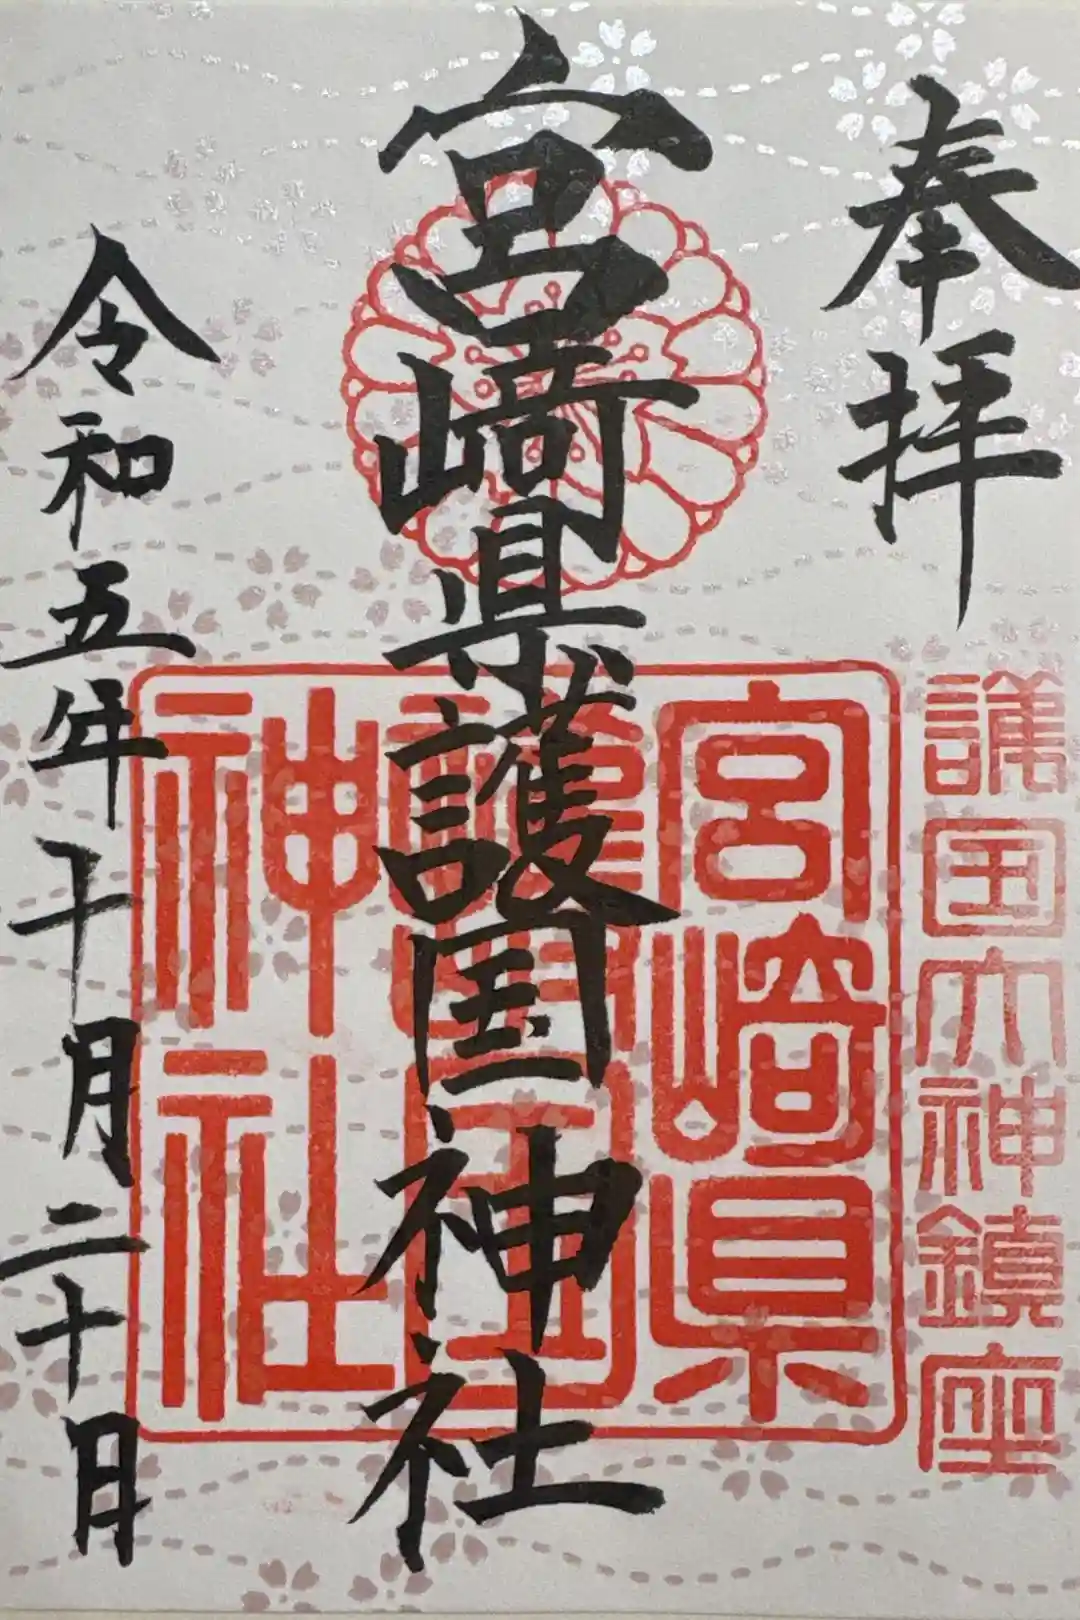 奉拝
護国大神鎮座
宮崎県護国神社
宮崎県
護国
神社
令和五年十月二十日